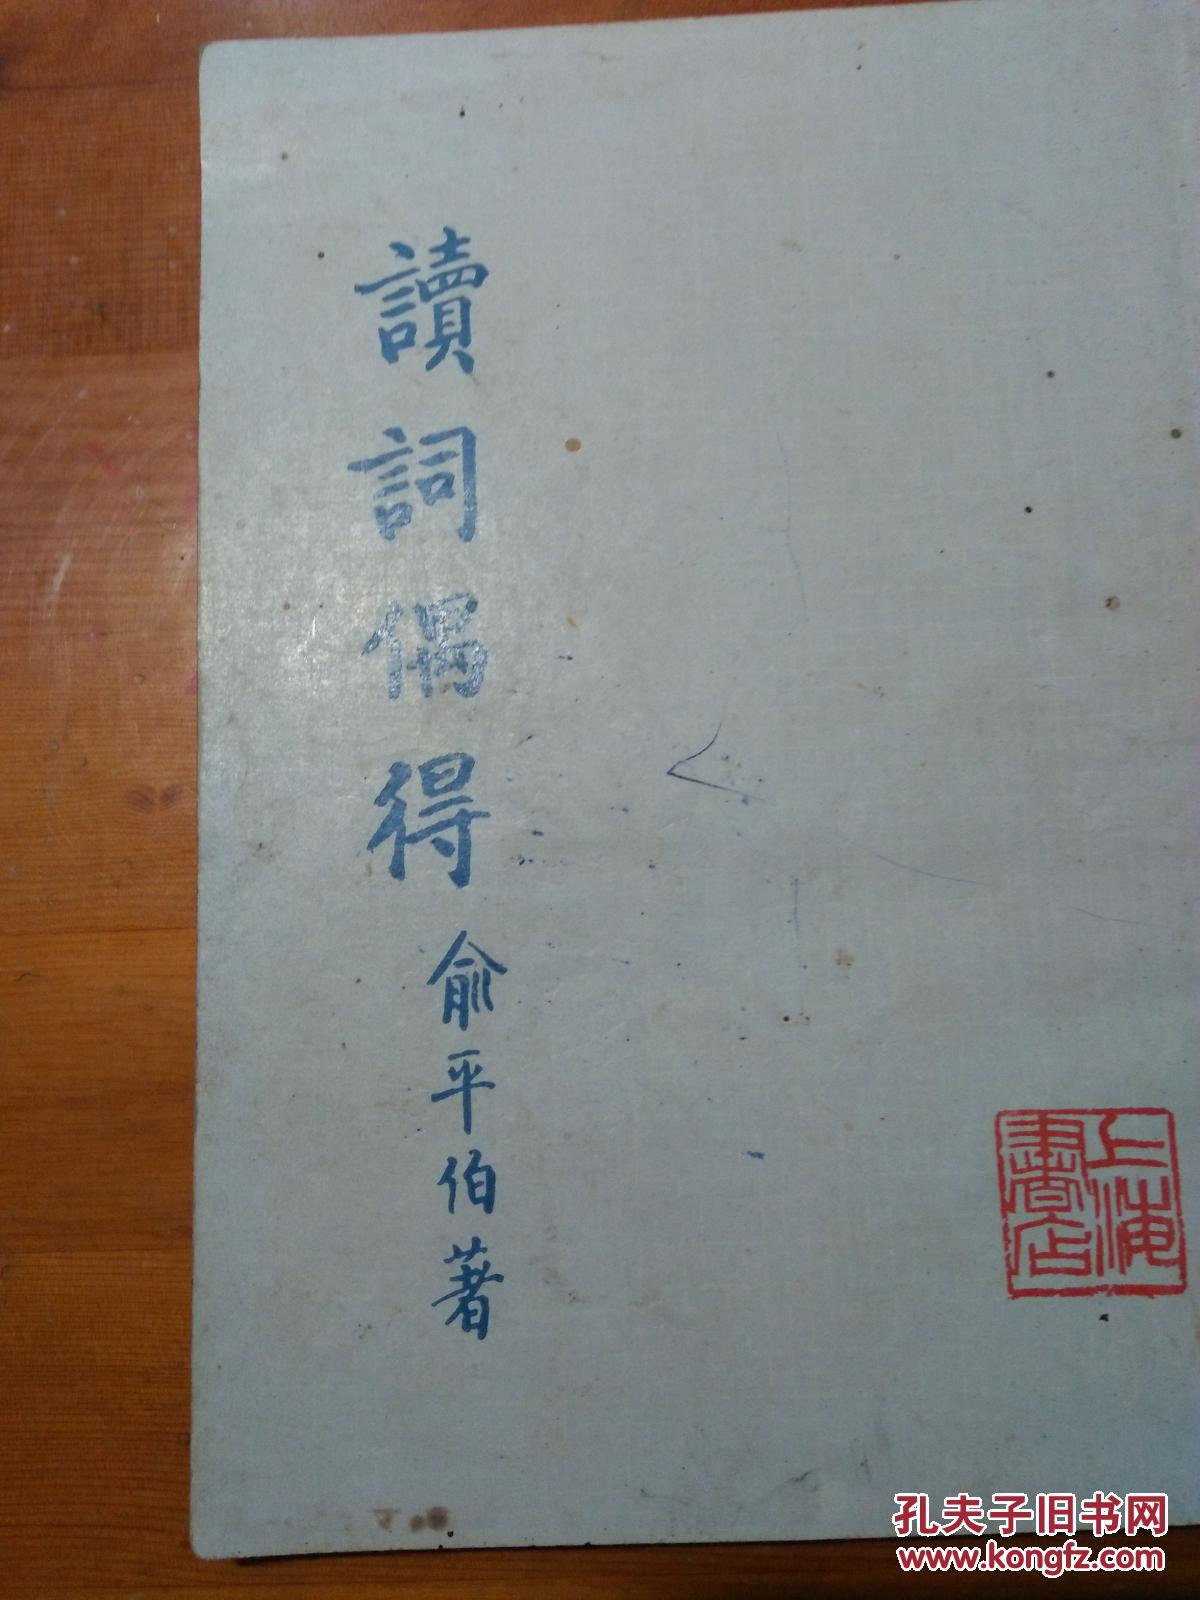 讀詞偶得
俞平伯著
上海
書店
孔夫子旧书网
www.kongfz.com